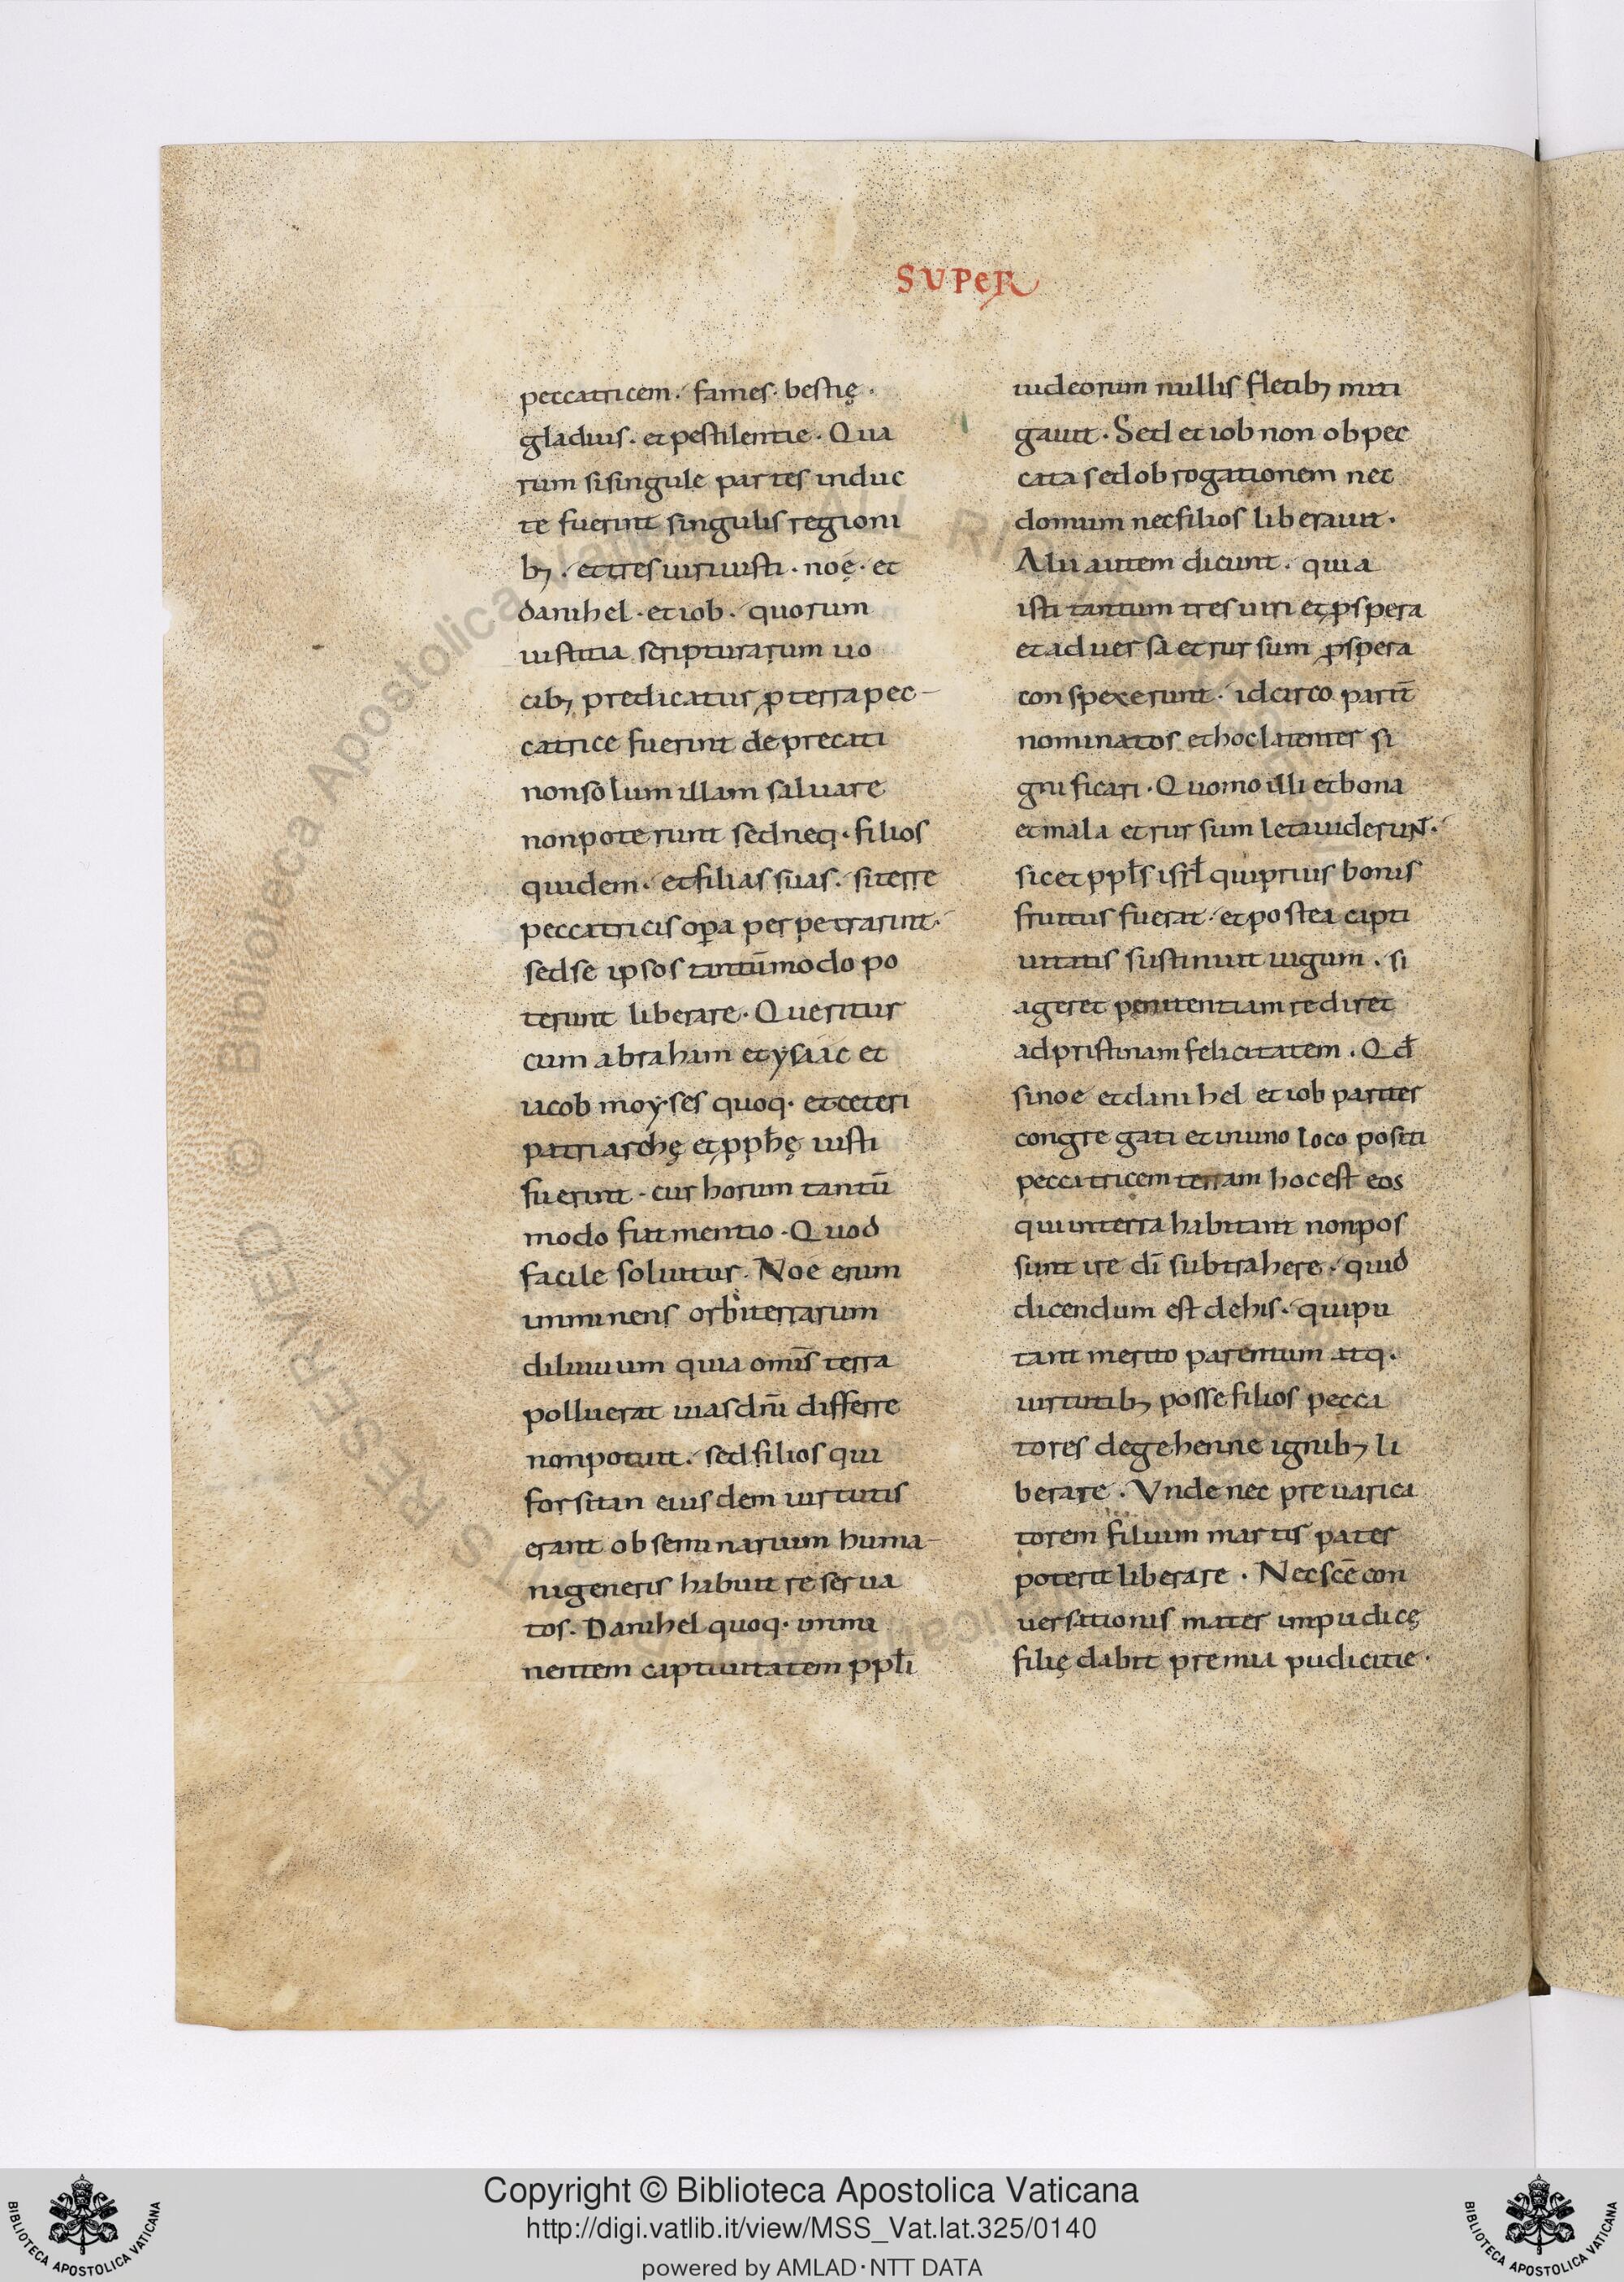 SUPER
peccatricem. fames. bestię.
gladius. et pestilentie. Qua
rum si singule partes induc
te fuerint singulis regioni
bꝫ. et tres uiri iusti. noę. et
danihel. et iob. quorum
iustitia scripturarum uo
cibꝫ predicatur ꝓ terra pec-
catrice fuerint deprecati
non solum illam saluare
non poterunt sed neq. filios
quidem. et filias suas. si terre
peccatricis oꝑa perpetrarint.
sed se ipsos tantūmodo po
terunt liberare. Queritur
cum abraham et ysaac et
iacob moyses quoq. et ceteri
patriarchę et ꝓph̄ę iusti
fuerint. cur horum tantū
modo fiat mentio. Quod
facile soluitur. Noe enim
imminens orbi terrarum
diluuium quia omīs terra
polluerat uias dn̄i differre
non potuit. sed filios qui
forsitan eiusdem uirtutis
erant ob seminarium huma-
ni generis habuit reserua
tos. Danihel quoq. immi
nentem captiuitatem ppl̄i
iudeorum nullis fletibꝫ miti
gauit. Sed et iob non ob pec
cata sed ob rogationem nec
domum nec filios liberauit.
Alii autem dicunt. quia
isti tantum tres uiri et ꝓspera
et aduersa et rursum ꝓspera
conspexerunt. idcirco parit̄
nominatos et hoc latenter si
gnificari. Quomo illi et bona
et mala et rursum leta uiderunt.
sic et ppl̄s isrl̄ qui prius bonis
fruitus fuerat. et postea capti
uitatis sustinuit iugum. si
ageret penitentiam rediret
ad pristinam felicitatem. Qd̄
si noe et danihel et iob pariter
congregati et in uno loco positi
peccatricem terram hoc est eos
qui in terra habitant non pos
sunt ire dī subtrahere. quid
dicendum est de his. qui pu
tant merito parentum atq.
uirtutibꝫ posse filios pecca
tores de gehenne ignibꝫ li
berare. Vnde nec preuarica
torem filium martis pater
poterit liberare. Nec scē con
uersationis mater impudicę
filię dabit premia pudicitie.
Copyright © Biblioteca Apostolica Vaticana
http://digi.vatlib.it/view/MSS_Vat.lat.325/0140
powered by AMLAD·NTT DATA
BIBLIOTECA APOSTOLICA VATICANA
BIBLIOTECA APOSTOLICA VATICANA